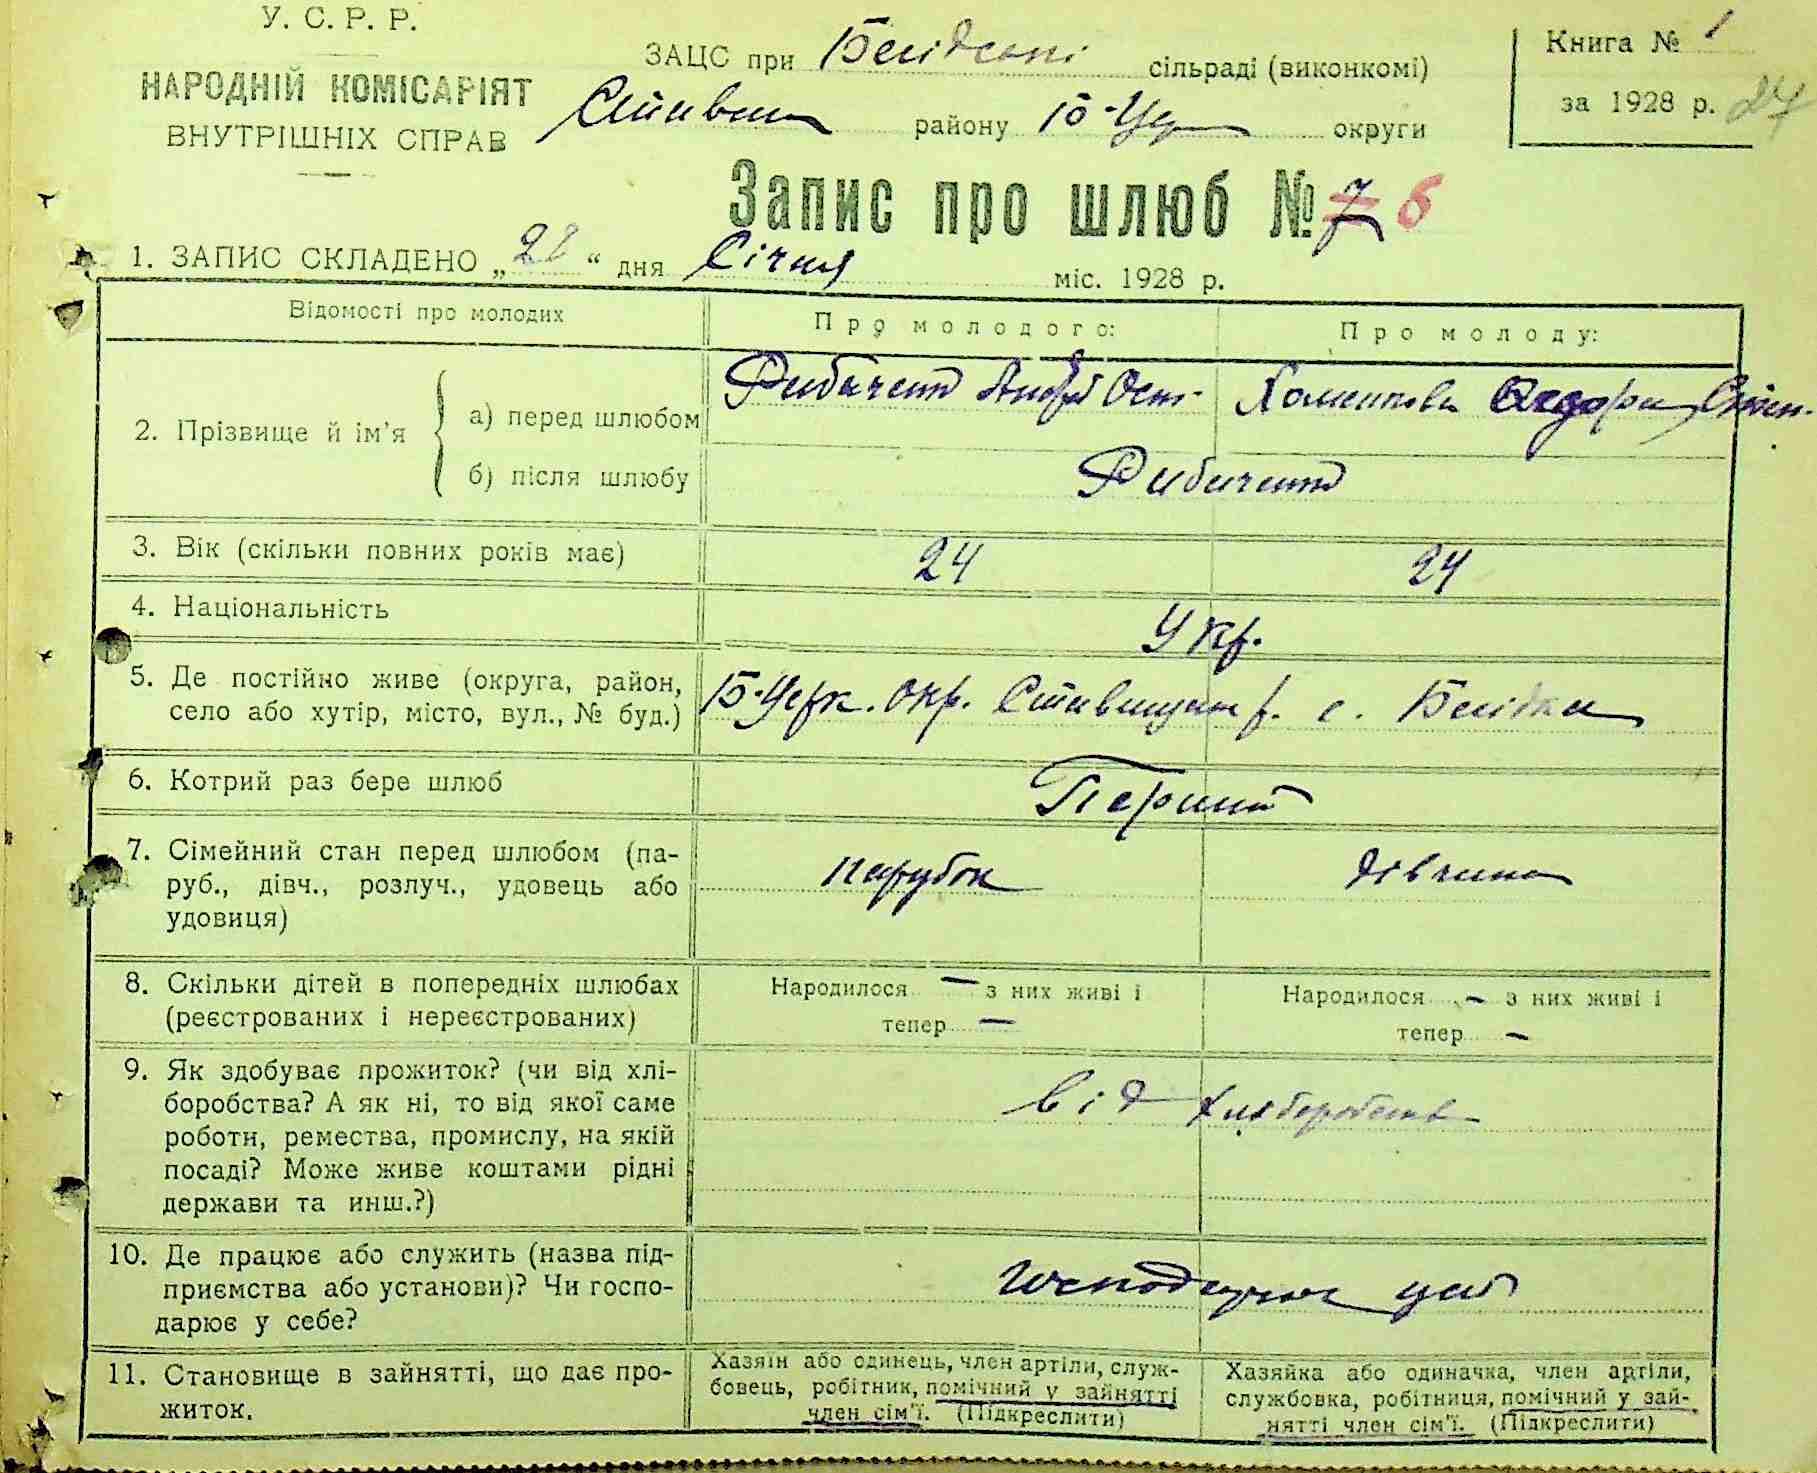 У. С. Р. Р.
НАРОДНІЙ КОМІСАРІЯТ
ВНУТРІШНІХ СПРАВ
ЗАЦС при Бесідській сільраді (виконкомі)
Ставищ району Б-Цер округи
Книга № 1
за 1928 р. 27
Запис про шлюб № 7 6
1. ЗАПИС СКЛАДЕНО „22“ дня Січня міс. 1928 р.
Відомості про молодих
Про молодого:
Про молоду:
2. Прізвище й ім’я
а) перед шлюбом
Рибаченко Андрій Ост.
Хоменкова Федора
б) після шлюбу
Рибаченко
3. Вік (скільки повних років має)
24
24
4. Національність
Укр.
5. Де постійно живе (округа, район,
село або хутір, місто, вул., № буд.)
Б-Церк. окр. Ставищан р. с. Бесідка
6. Котрий раз бере шлюб
Перший
7. Сімейний стан перед шлюбом (па-
руб., дівч., розлуч., удовець або
удовиця)
парубок
дівчина
8. Скільки дітей в попередніх шлюбах
(реєстрованих і нереєстрованих)
Народилося — з них живі і
тепер —
Народилося — з них живі і
тепер —
9. Як здобуває прожиток? (чи від хлі-
боробства? А як ні, то від якої саме
роботи, ремества, промислу, на якій
посаді? Може живе коштами рідні
держави та инш.?)
від хліборобства
10. Де працює або служить (назва під-
приємства або установи)? Чи госпо-
дарює у себе?
11. Становище в зайнятті, що дає про-
житок.
Хазяїн або одинець, член артіли, служ-
бовець, робітник, помічний у зайнятті
член сім’ї. (Підкреслити)
Хазяйка або одиначка, член артіли,
службовка, робітниця, помічний у зай-
нятті член сім’ї. (Підкреслити)